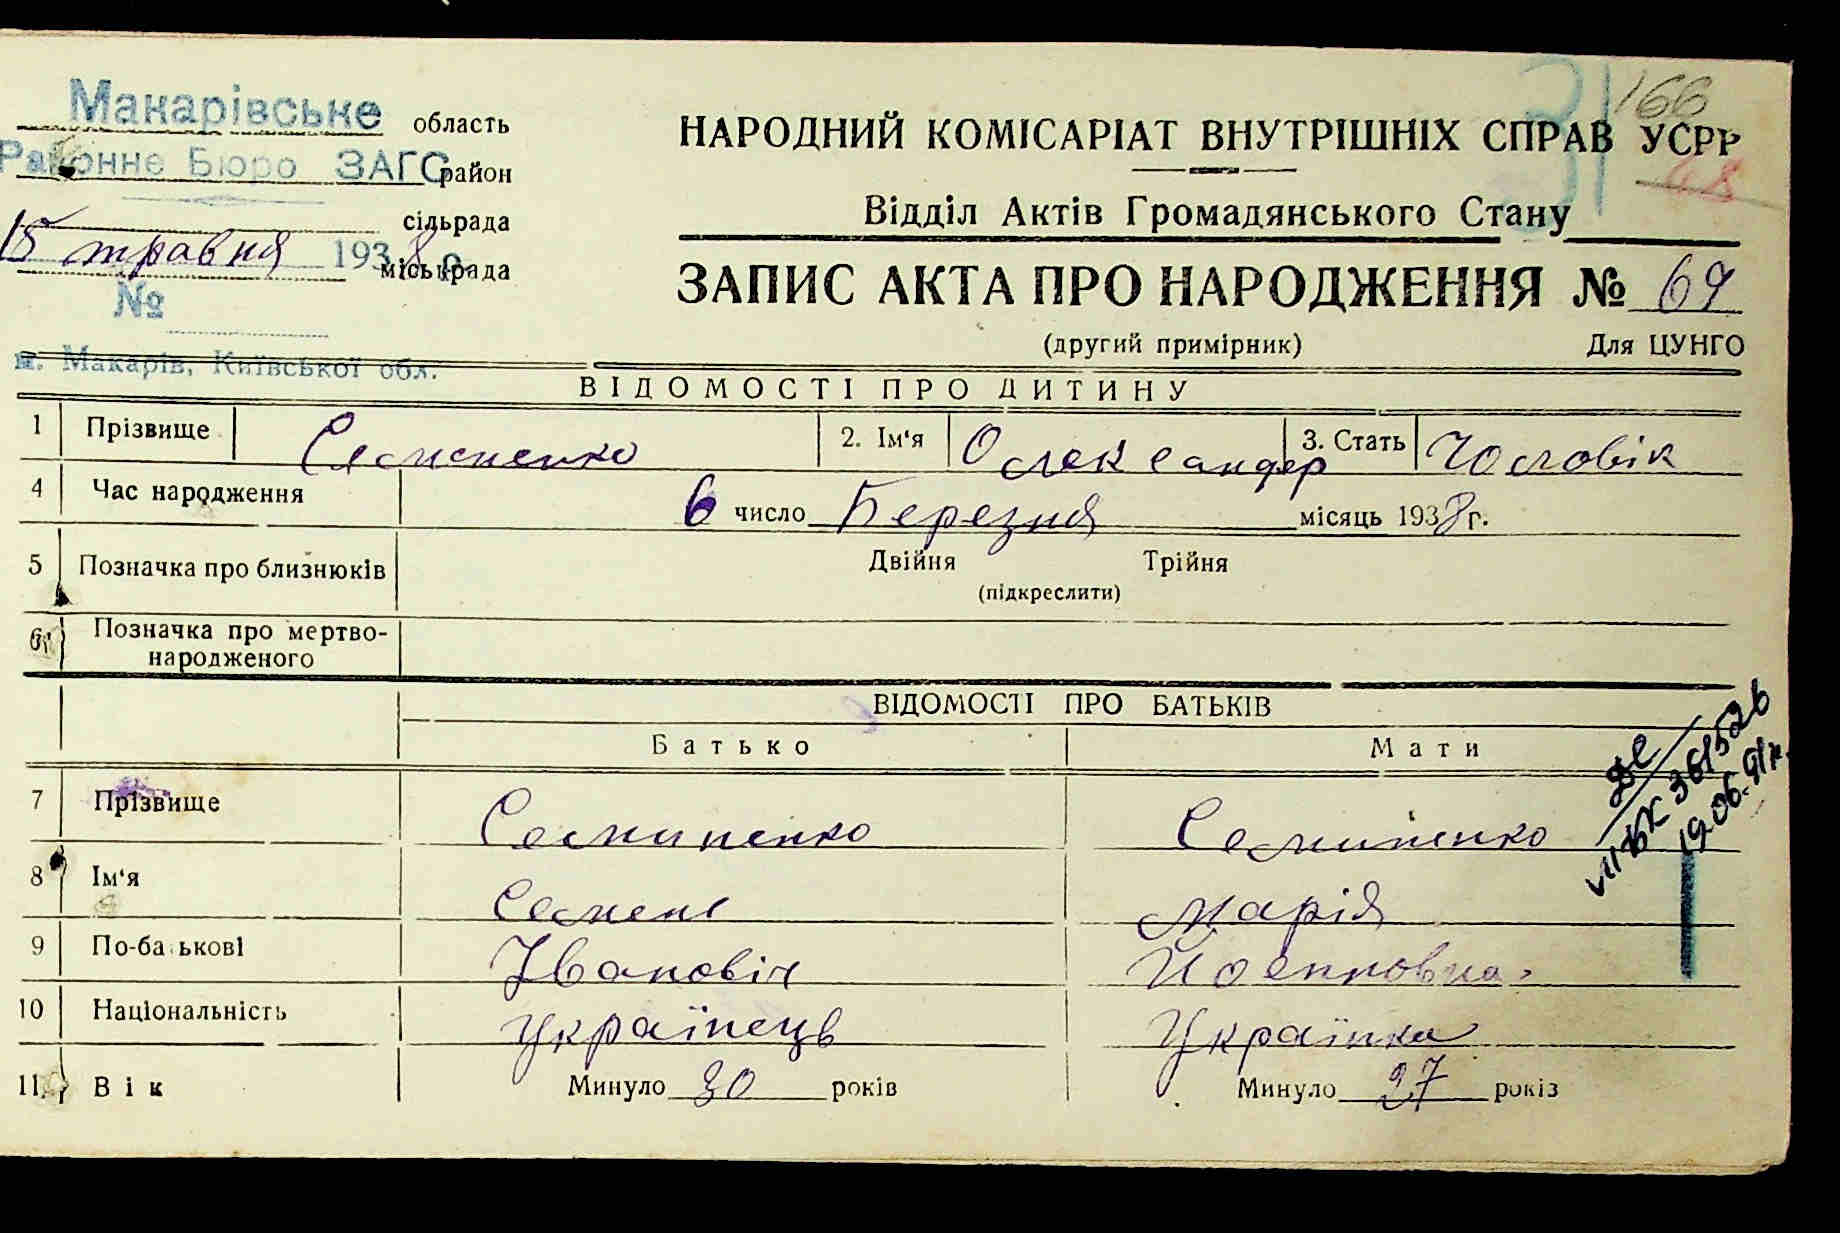 Макарівське область
Районне Бюро ЗАГС район
сільрада
15 травня 1938 р. міськрада
№
м. Макарів, Київської обл.
31 166
48
НАРОДНИЙ КОМІСАРІАТ ВНУТРІШНІХ СПРАВ УСРР
Відділ Актів Громадянського Стану
ЗАПИС АКТА ПРО НАРОДЖЕННЯ № 69
(другий примірник) Для ЦУНГО
ВІДОМОСТІ ПРО ДИТИНУ
1 Прізвище 2. Ім'я Олександер 3. Стать Чоловік
4 Час народження 6 число Березня місяць 1938 г.
5 Позначка про близнюків Двійня Трійня
(підкреслити)
6 Позначка про мертво-
народженого
ВІДОМОСТІ ПРО БАТЬКІВ
Батько Мати
7 Прізвище Семиненко Семиненко
8 Ім'я Семен Марія
9 По-батькові Іванович Йосиповна
10 Національність Українець Українка
11 Вік Минуло 30 років Минуло 27 років
361526
19.06.91